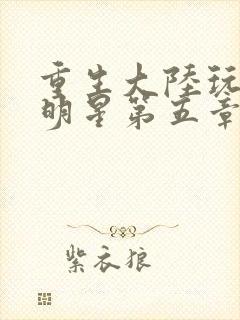 重生大陸玩
明星第五章
紫衣狼